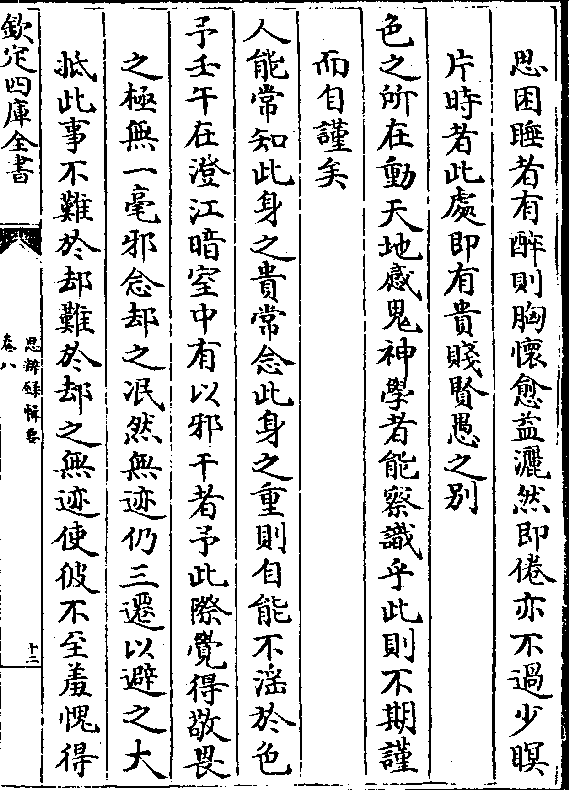 思困睡者有醉則胸懷愈益灑然即倦亦不過少瞑
片時者此處即有貴賤賢愚之别
色之所在動天地感鬼神學者能察識乎此則不期謹
而自謹矣
人能常知此身之貴常念此身之重則自能不淫於色
予壬午在澄江暗室中有以邪干者予此際覺得敬畏
之極無一毫邪念却之泯然無迹仍三遷以避之大
抵此事不難於却難於却之無迹使彼不至羞愧得
欽定四庫全書
思辨録輯要
卷八
十二